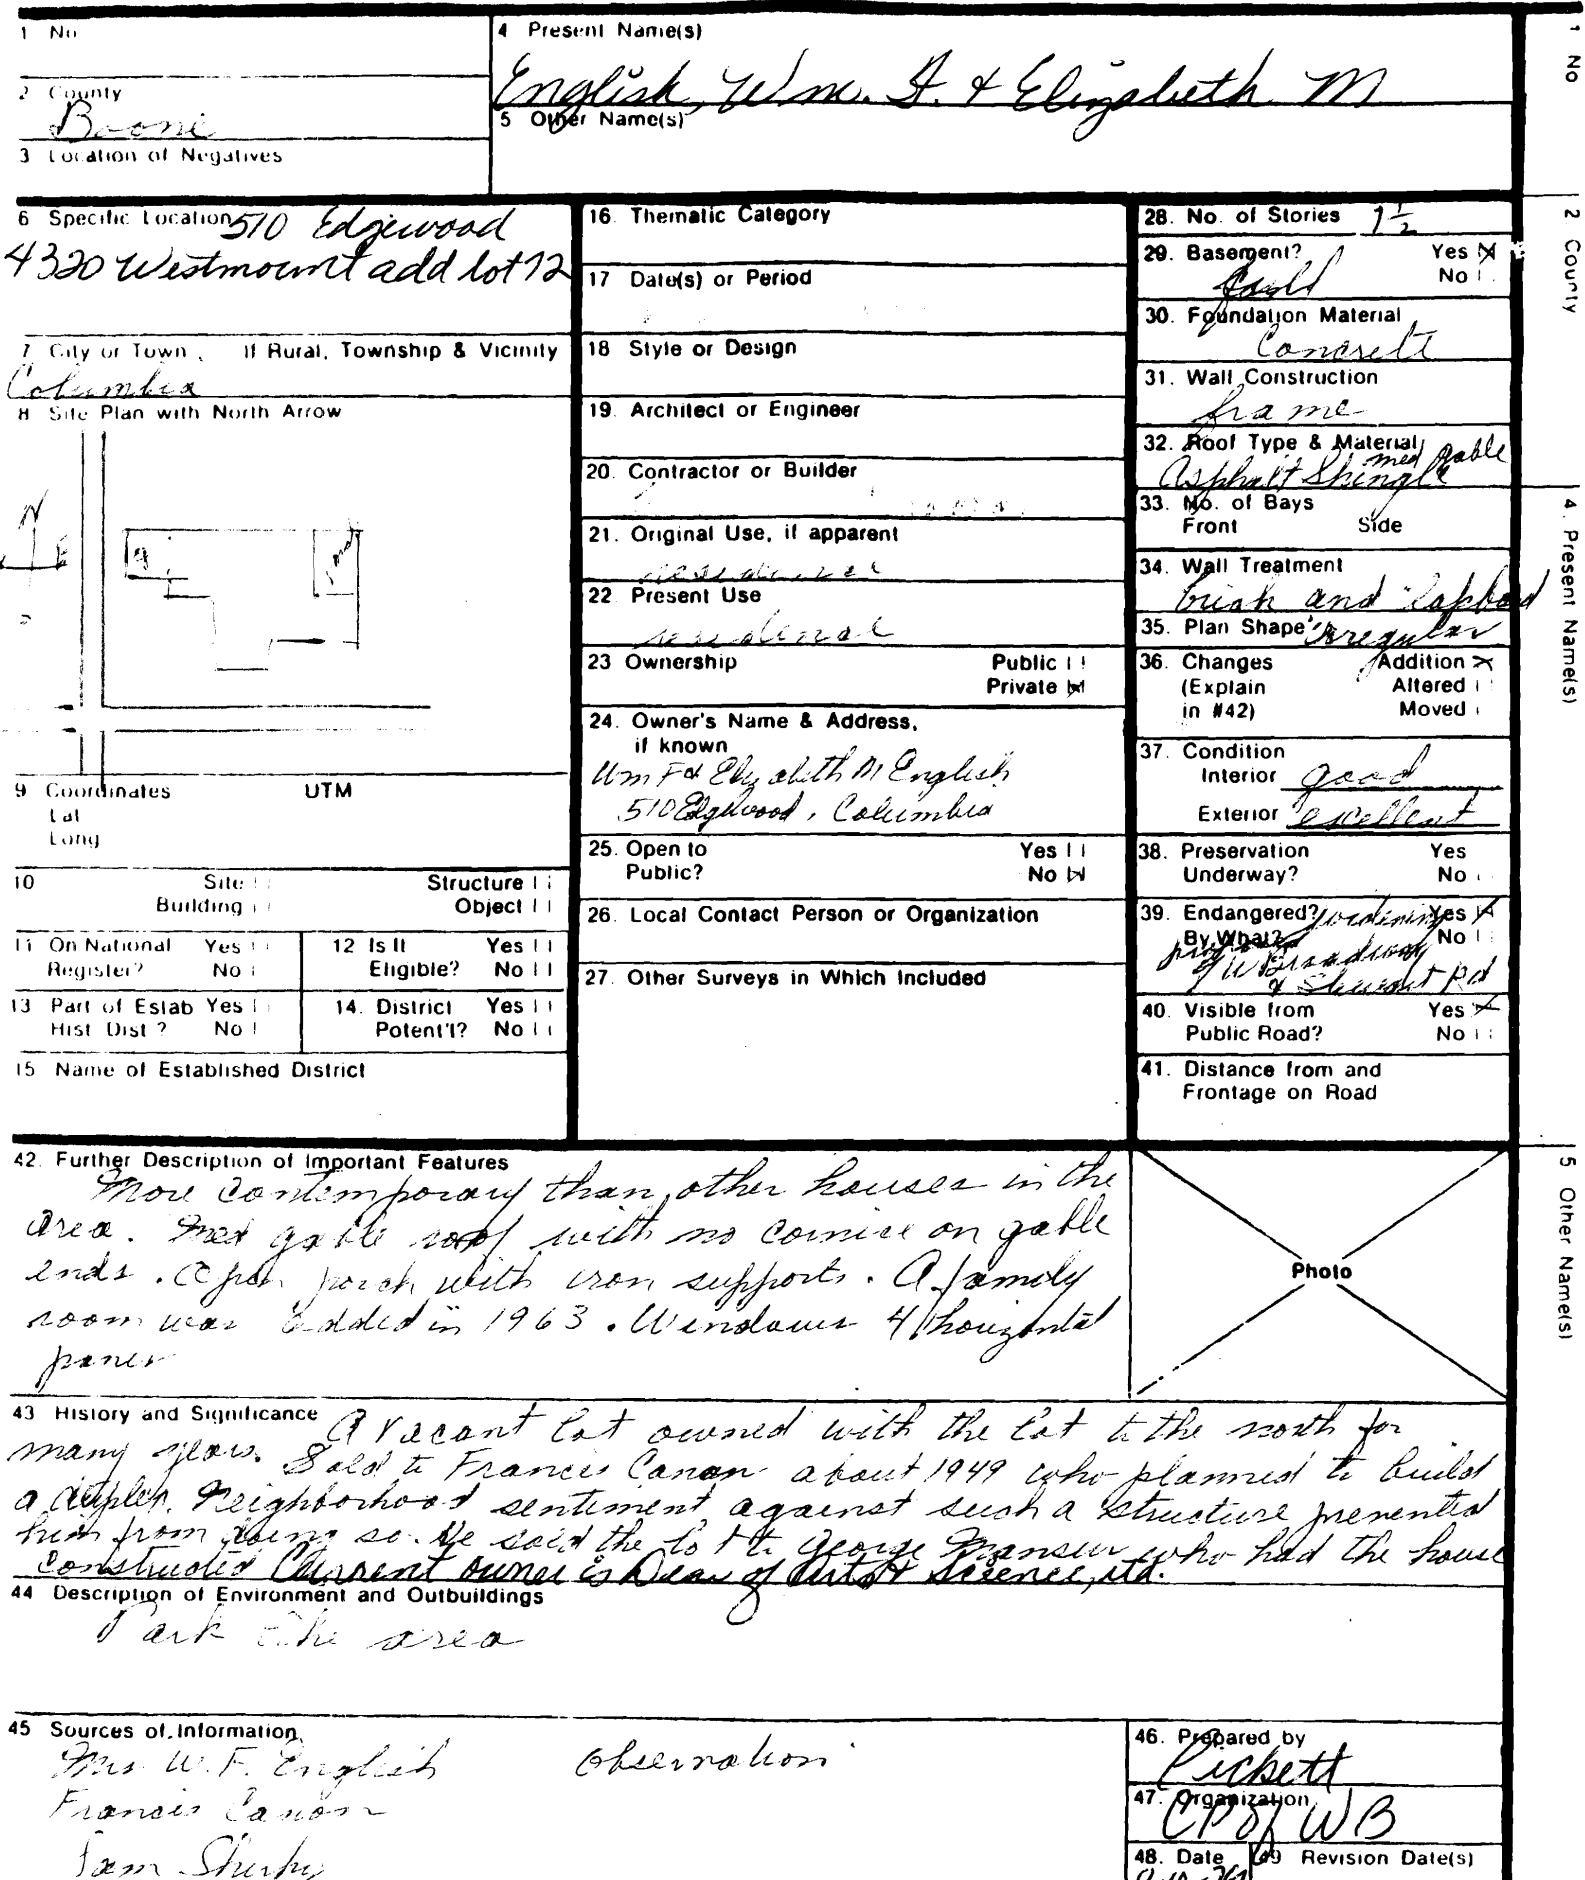 1 No
4 Present Name(s)
English, Wm. F. & Elizabeth M
2 County
Boone
5 Other Name(s)
3 Location of Negatives
6 Specific Location 510 Edgewood
4320 Westmount add lot 12
7 City or Town, If Rural, Township & Vicinity
Columbia
8 Site Plan with North Arrow
N
E
9 Coordinates UTM
Lat
Long
10 Site Structure
Building Object
11 On National Register? Yes No
12 Is It Eligible? Yes No
13 Part of Estab Hist Dist? Yes No
14. District Potent'l? Yes No
15 Name of Established District
16. Thematic Category
17 Date(s) or Period
18 Style or Design
19. Architect or Engineer
20. Contractor or Builder
21. Original Use, if apparent
22 Present Use
23 Ownership Public
Private
24. Owner's Name & Address,
if known
Wm F & Elizabeth M English
510 Edgewood, Columbia
25. Open to Yes
Public? No
26. Local Contact Person or Organization
27. Other Surveys in Which Included
28. No. of Stories 1 1/2
29. Basement? Yes
No
30. Foundation Material
Concrete
31. Wall Construction
frame
32. Roof Type & Material
med gable
Asphalt Shingle
33. No. of Bays
Front Side
34. Wall Treatment
brick and lapboard
35. Plan Shape irregular
36. Changes Addition
(Explain Altered
in #42) Moved
37. Condition
Interior good
Exterior excellent
38. Preservation Yes
Underway? No
39. Endangered? Yes
By What? No
of W Broadway
& Stewart Rd
40. Visible from Yes
Public Road? No
41. Distance from and
Frontage on Road
42. Further Description of Important Features
More contemporary than other houses in the
area. Med gable roof with no cornice on gable
ends. Open porch with iron supports. A family
room was added in 1963. Windows 4 horizontal
panes
Photo
43 History and Significance A vacant lot owned with the lot to the north for
many years. Sold to Francis Canon about 1949 who planned to build
a duplex. Neighborhood sentiment against such a structure prevented
him from doing so. He sold the lot to George Mansur who had the house
constructed Current owner is Dean of Arts & Science, etd.
44 Description of Environment and Outbuildings
Park like area
45 Sources of Information
Mrs W. F. English Observation
Francis Canon
46. Prepared by
Pickett
47. Organization
CP of WB
48. Date 49 Revision Date(s)
1 No
2 County
4. Present Name(s)
5 Other Name(s)